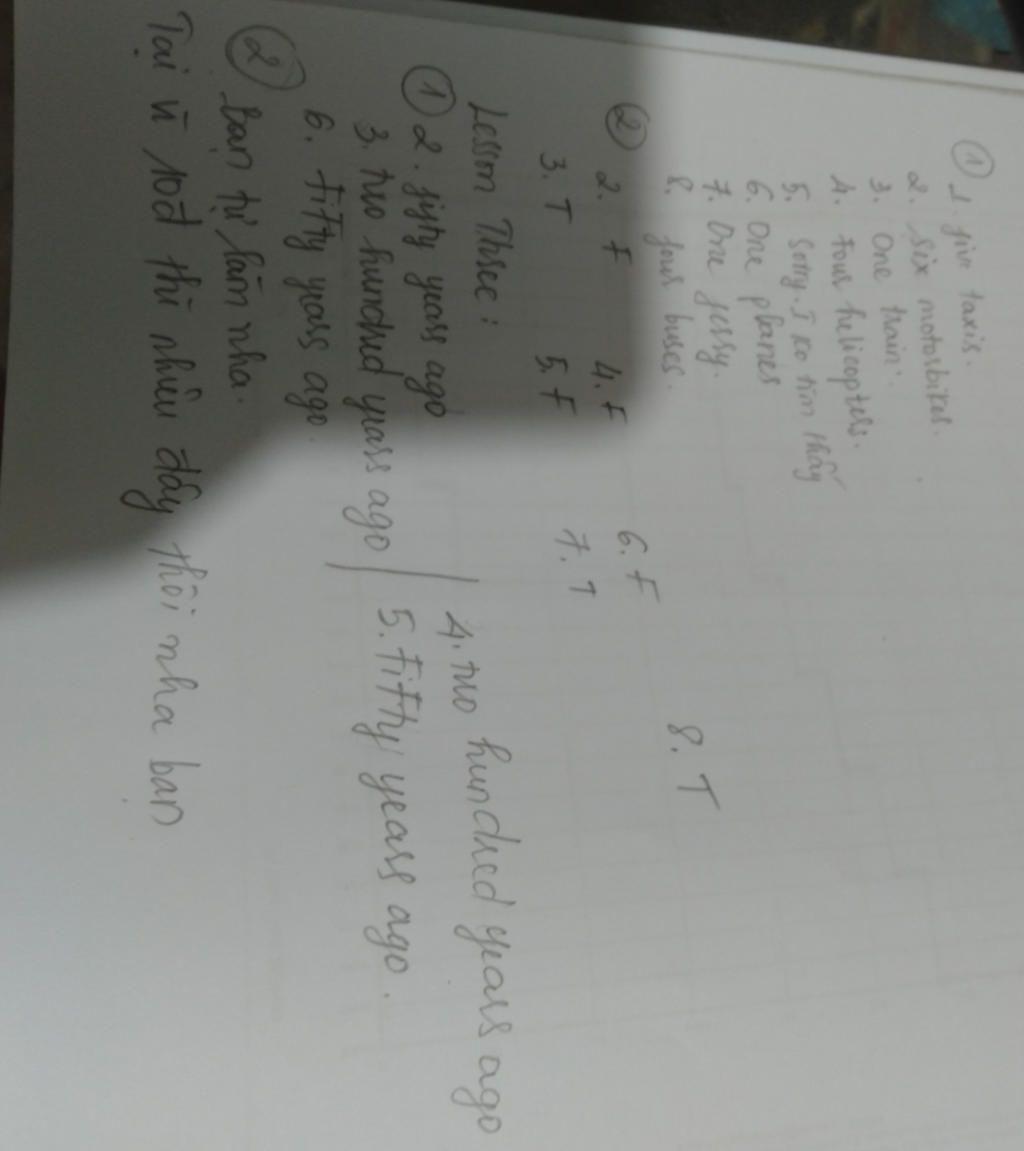 ① 1. five taxis.
2. six motorbikes.
3. One train.
4. four helicopters.
5. sorry. I ko tìm thấy
6. One planes
7. One ferry.
8. four buses.
② 2. F 4. F 6. F 8. T
3. T 5. F 7. T
Lesson Three:
① 2. fifty years ago 4. two hundred years ago
3. two hundred years ago 5. Fifty years ago.
6. Fifty years ago.
② Bạn tự làm nha.
Tại vì 10đ thì nhiêu đây thôi nha bạn